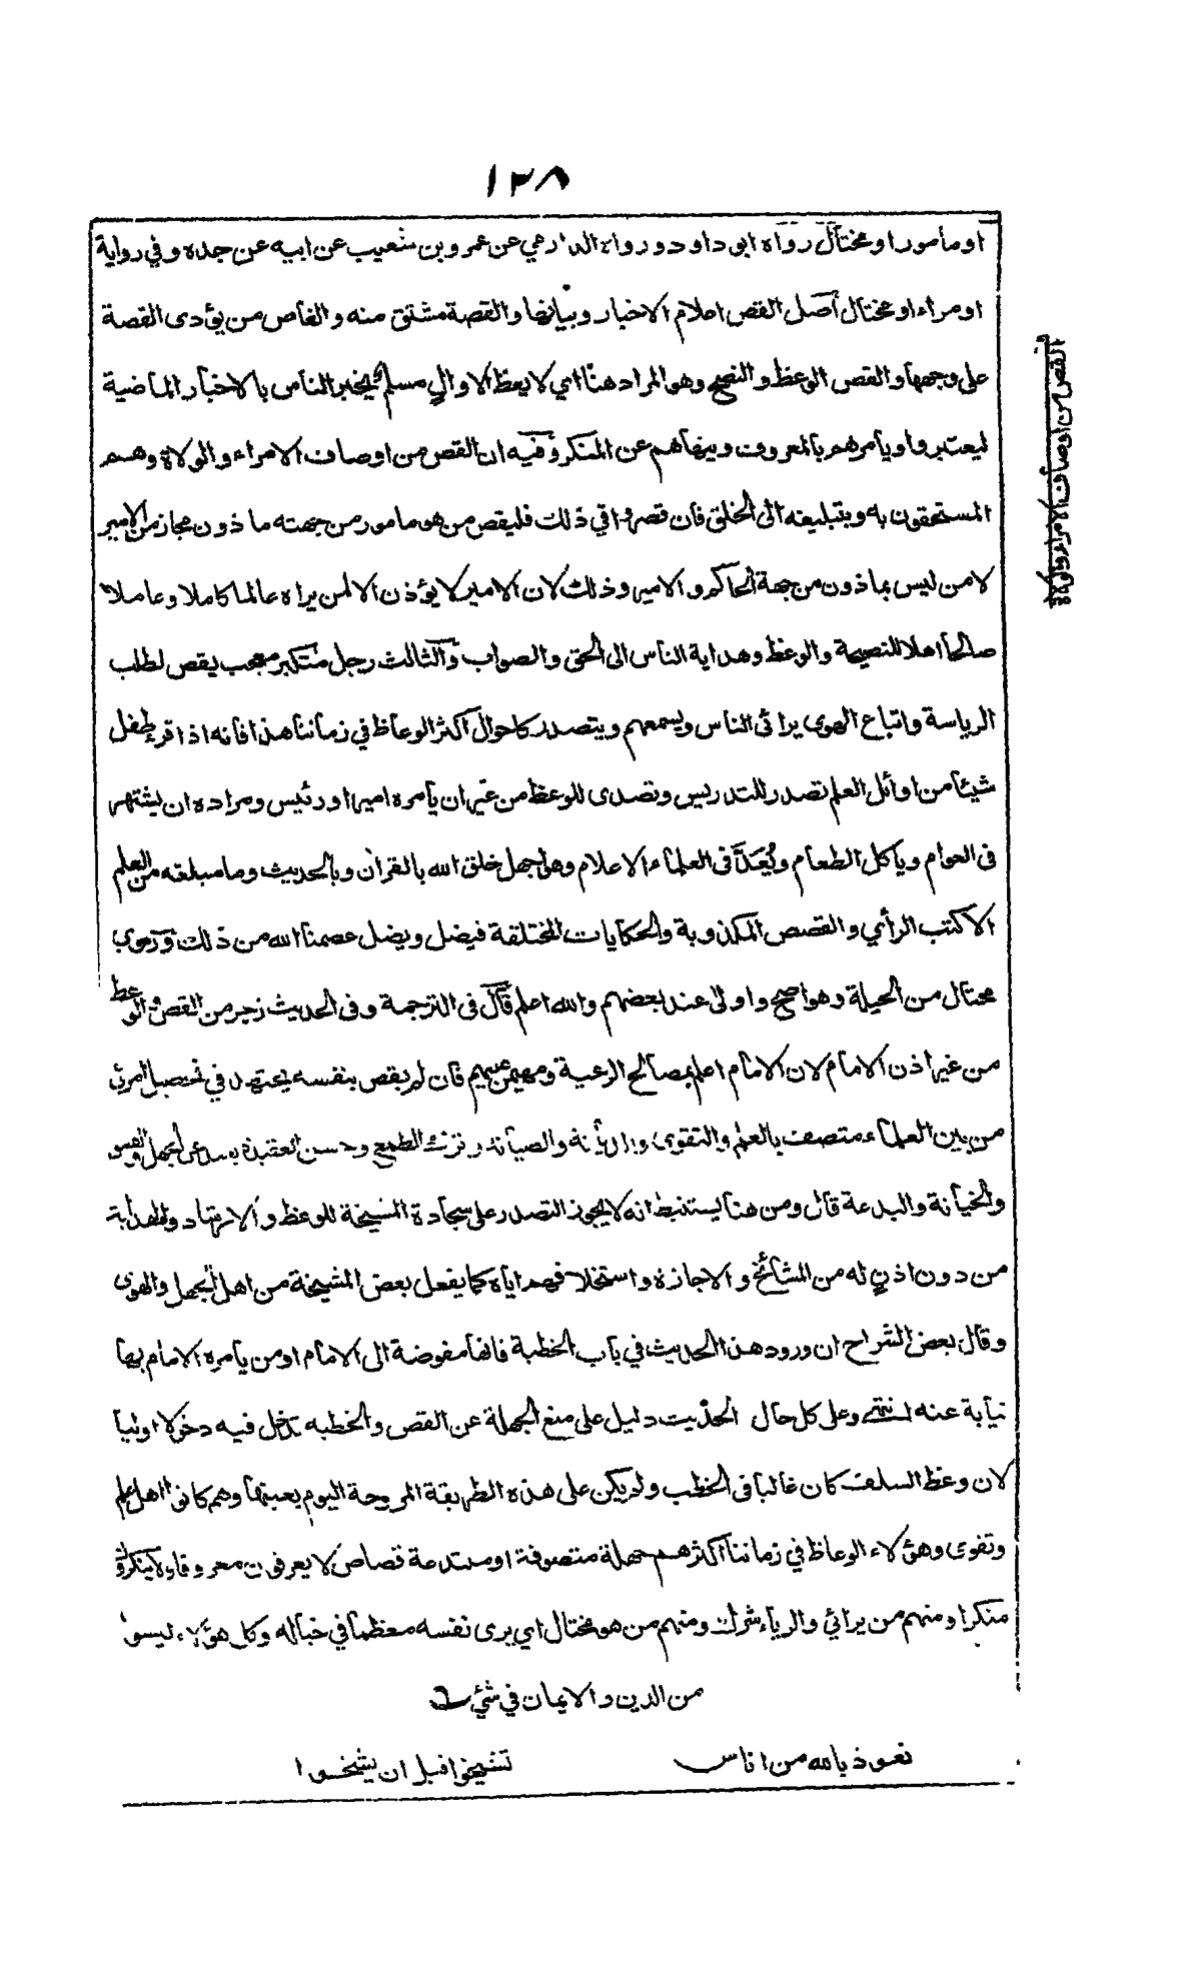 ١٢٨
او مأمور او مختال رواه ابو داود ورواه الدارمي عن عمرو بن شعيب عن ابيه عن جده وفي رواية
او مراء او مختال اصل القص اعلام الاخبار وبيانها والقصة مشتق منه والقاص من يؤدى القصة
على وجهها والقص الوعظ والنصح وهو المراد هنا اي لا يعظ الا والٍ مسلم يخبر الناس بالاخبار الماضية
ليعتبروا ويأمرهم بالمعروف وينهاهم عن المنكر وفيه ان القص من اوصاف الامراء والولاة وهم
المستحقون به وبتبليغه الى الخلق فان قصروا في ذلك فليقص من هو مامور من جهته ماذون مجاز من الامير
لا من ليس بماذون من جهة الحاكم والامير وذلك لان الامير لا يؤذن الا لمن يراه عالما كاملا وعاملا
صالحا اهلا للنصيحة والوعظ وهداية الناس الى الحق والصواب والثالث رجل متكبر معجب يقص لطلب
الرياسة واتباع الهوى يرائى الناس ويسمعهم ويتصدر كاحوال اكثر الوعاظ في زماننا هذا فانه اذا قرء طفل
شيئا من اوائل العلم تصدر للتدريس وتصدى للوعظ من غير ان يأمره امير او رئيس ومراده ان يشتهر
فى العوام وياكل الطعام ويُعَدَّ فى العلماء الاعلام وهو اجهل خلق الله بالقران وبالحديث وما مبلغه من العلم
الا كتب الرأي والقصص المكذوبة والحكايات المختلقة فيضل ويضل عصمنا الله من ذلك وروي
محتال من الحيلة وهو اصح واولى عند بعضهم والله اعلم قال فى الترجمة وفى الحديث زجر من القص والوعظ
من غير اذن الامام لان الامام اعلم بمصالح الرعية ومهيمن عليهم فان لم يقص بنفسه يجتهد في تحصيل امرئ
من بين العلماء متصف بالعلم والتقوى والديانة والصيانة وترك الطمع وحسن العقيدة بعيد عن الجهل والفسق
والخيانة والبدعة قال ومن هنا يستنبط انه لا يجوز التصدر على سجادة المشيخة للوعظ والارشاد والهداية
من دون اذنٍ له من المشائخ والاجازة واستخلافهم اياه كما يفعل بعض المشيخة من اهل الجهل والهوى
وقال بعض الشراح ان ورود هذا الحديث في باب الخطبة فانها مفوضة الى الامام او من يأمره الامام بها
نيابة عنه انتهى وعلى كل حال الحديث دليل على منع الجهلة عن القص والخطبه تدخل فيه دخولا اوليا
لان وعظ السلف كان غالبا فى الخطب ولم يكن على هذه الطريقة المروجة اليوم بعينها وهم كانوا اهل علم
وتقوى وهؤلاء الوعاظ في زماننا اكثرهم جهلة متصوفة او مبتدعة قصاص لا يعرفون معروفا ولا ينكرون
منكرا ومنهم من يرائي والرياء شرك ومنهم من هو مختال اي يرى نفسه معظما في خياله وكل هؤلاء ليسوا
من الدين والايمان في شيء
نعوذ بالله من اناس تشيخوا قبل ان يشيخوا
القص من اوصاف الامراء والولاة